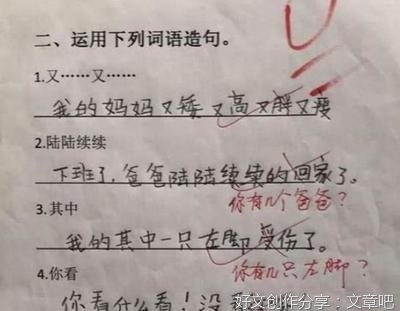 二、运用下列词语造句。
1.又……又……
我的妈妈又矮又高又胖又瘦
2.陆陆续续
下班了,爸爸陆陆续续的回家了。
你有几个爸爸?
3.其中
我的其中一只左脚受伤了。
你有几只左脚?
4.你看
你看什么看!没
好文创作分享:文章吧